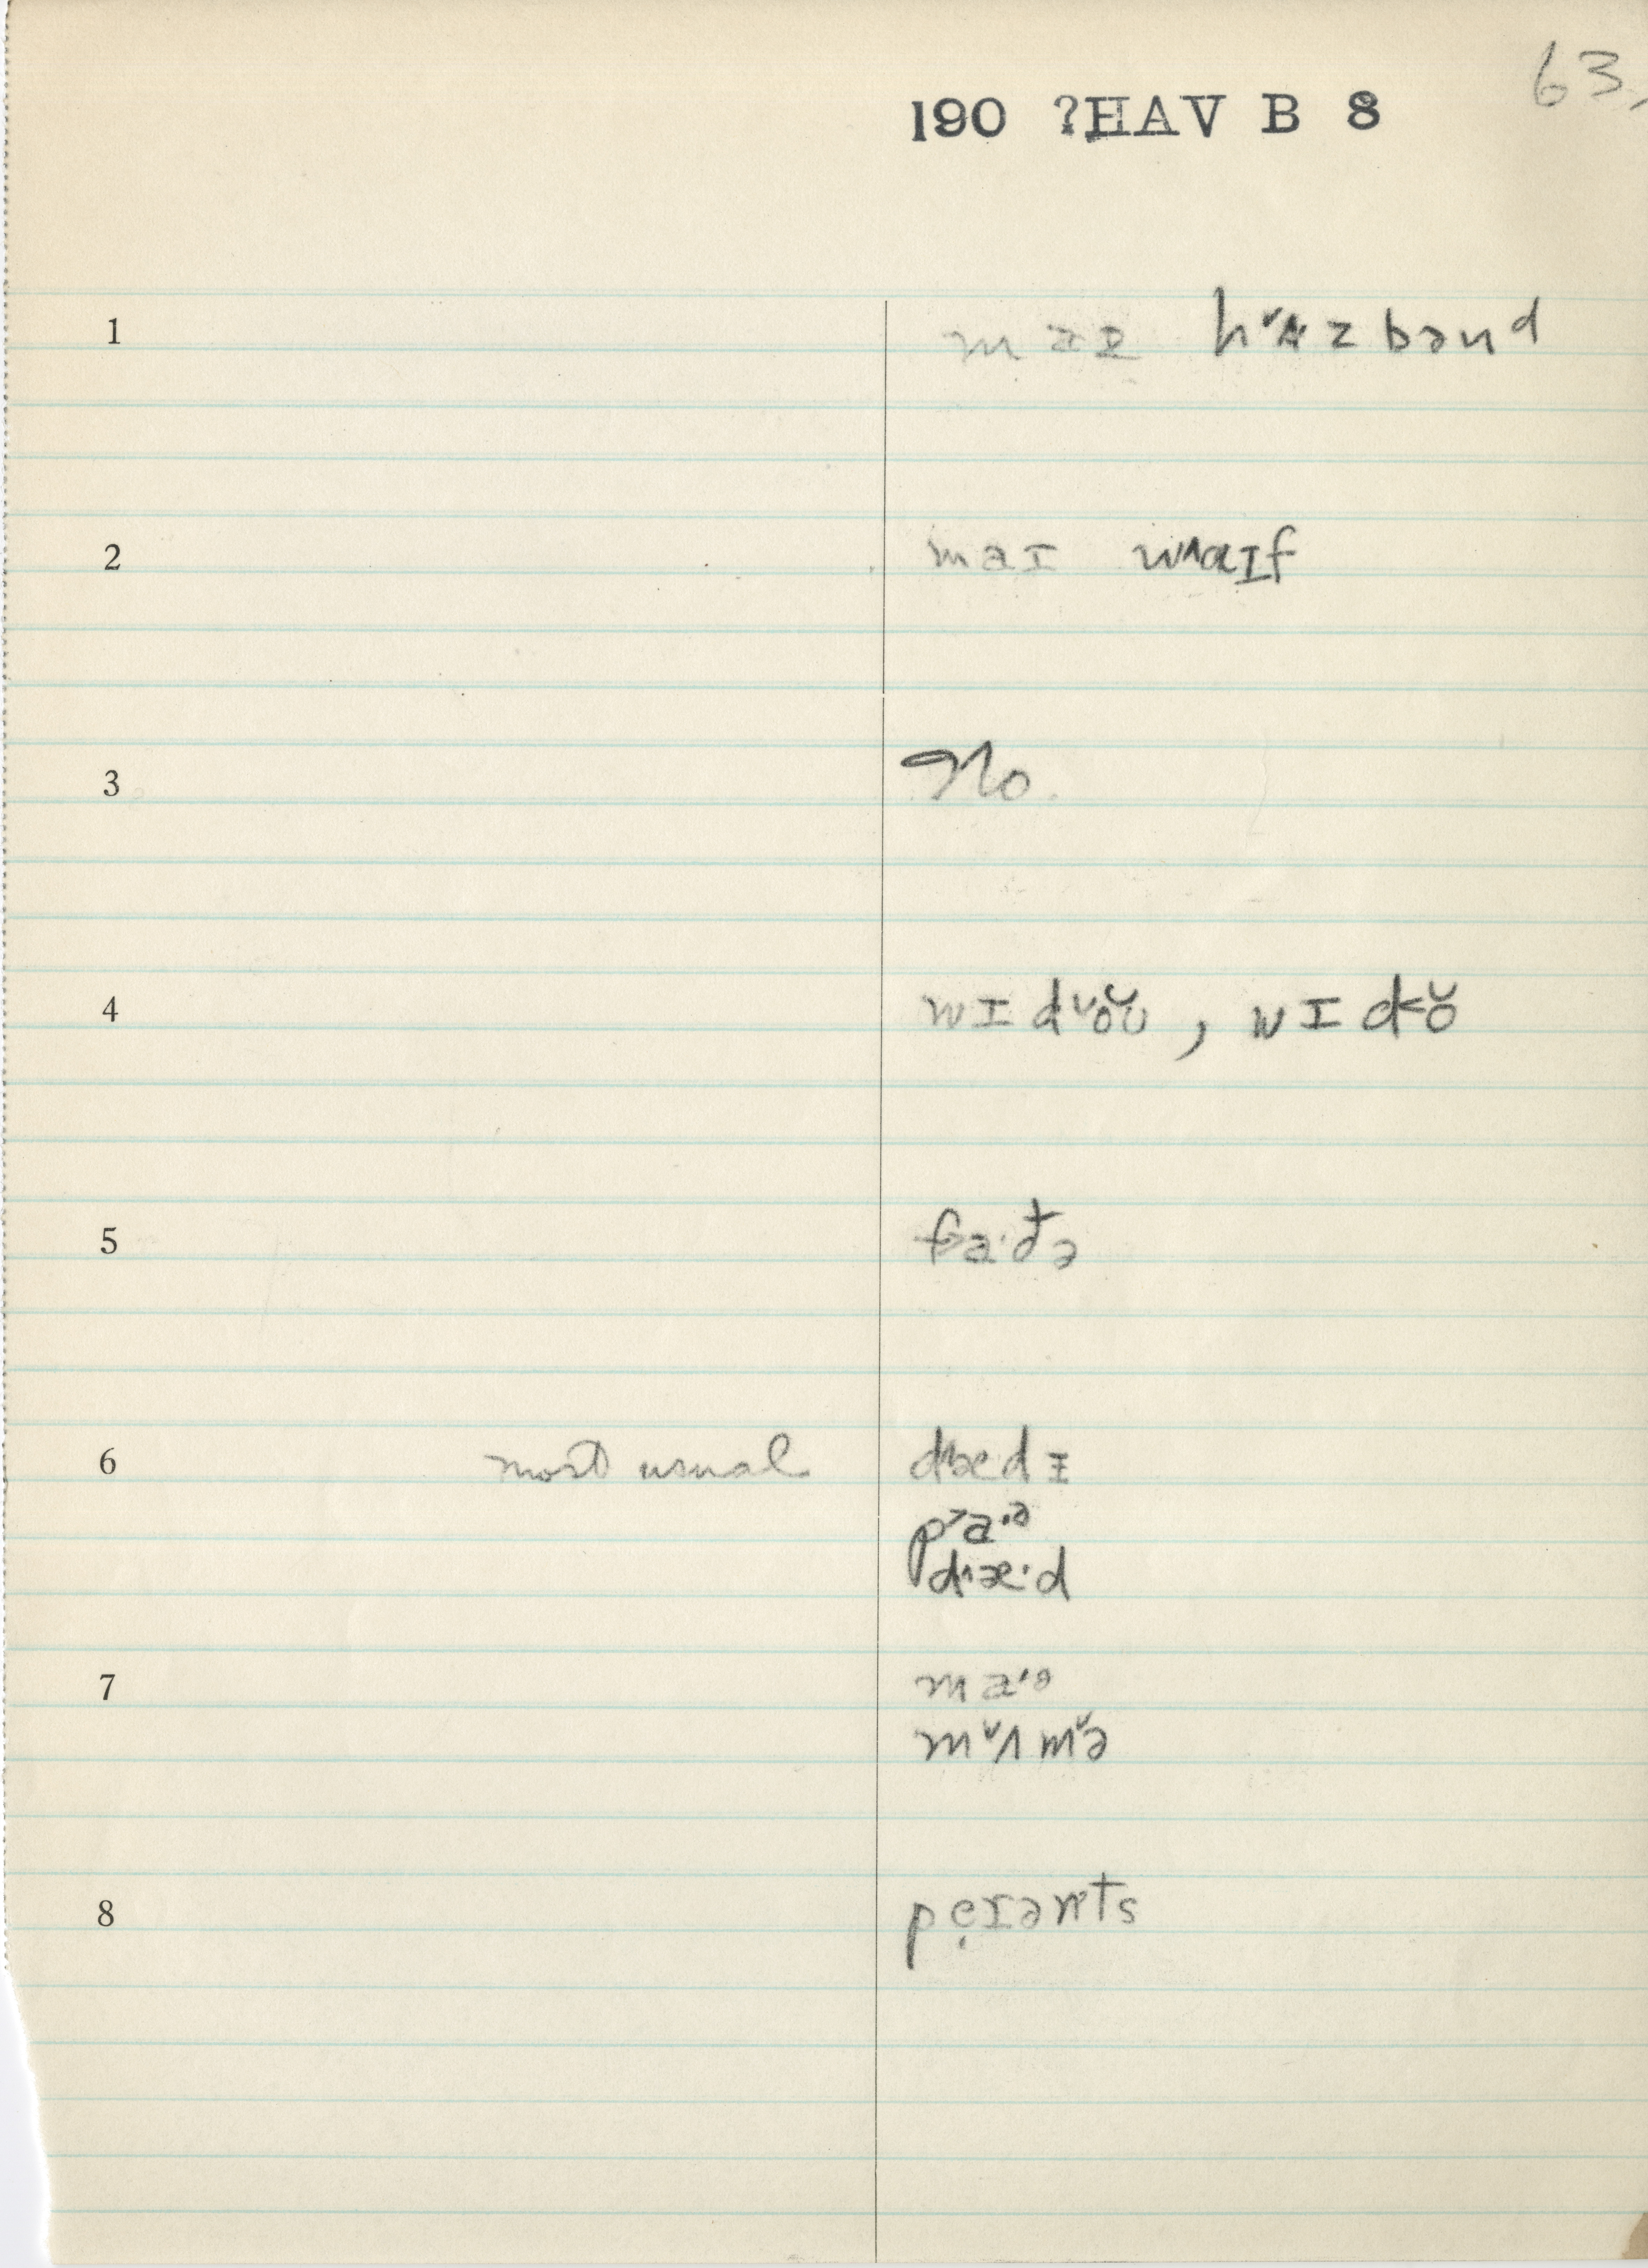 63.
190 ?HAV B 8
1 maɪ hʌzbənd
2 maɪ wˆaɪf
3 No.
4 wɪdˇo̯ʊ̆, wɪd˂ŏ
5 fa·ðə
6 most usual dˆædɪ
p˃a·ᵊ
dˆæ·d
7 ma·ᵊ
mˇʌmˇə
8 pẹrənts